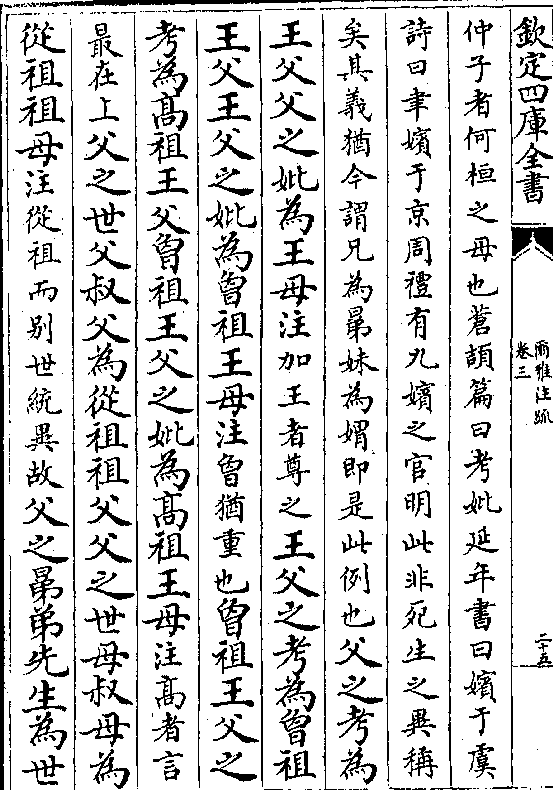 欽定四庫全書
爾雅注疏
卷三
二十五
仲子者何桓之母也蒼頡篇曰考妣延年書曰嬪于虞
詩曰聿嬪于京周禮有九嬪之官明此非死生之異稱
矣其義猶今謂兄為晜妹為媦即是此例也父之考為
王父父之妣為王母注加王者尊之王父之考為曾祖
王父王父之妣為曾祖王母注曾猶重也曾祖王父之
考為髙祖王父曾祖王父之妣為髙祖王母注髙者言
最在上父之世父叔父為從祖祖父父之世母叔母為
從祖祖母注從祖而别世統異故父之晜弟先生為世